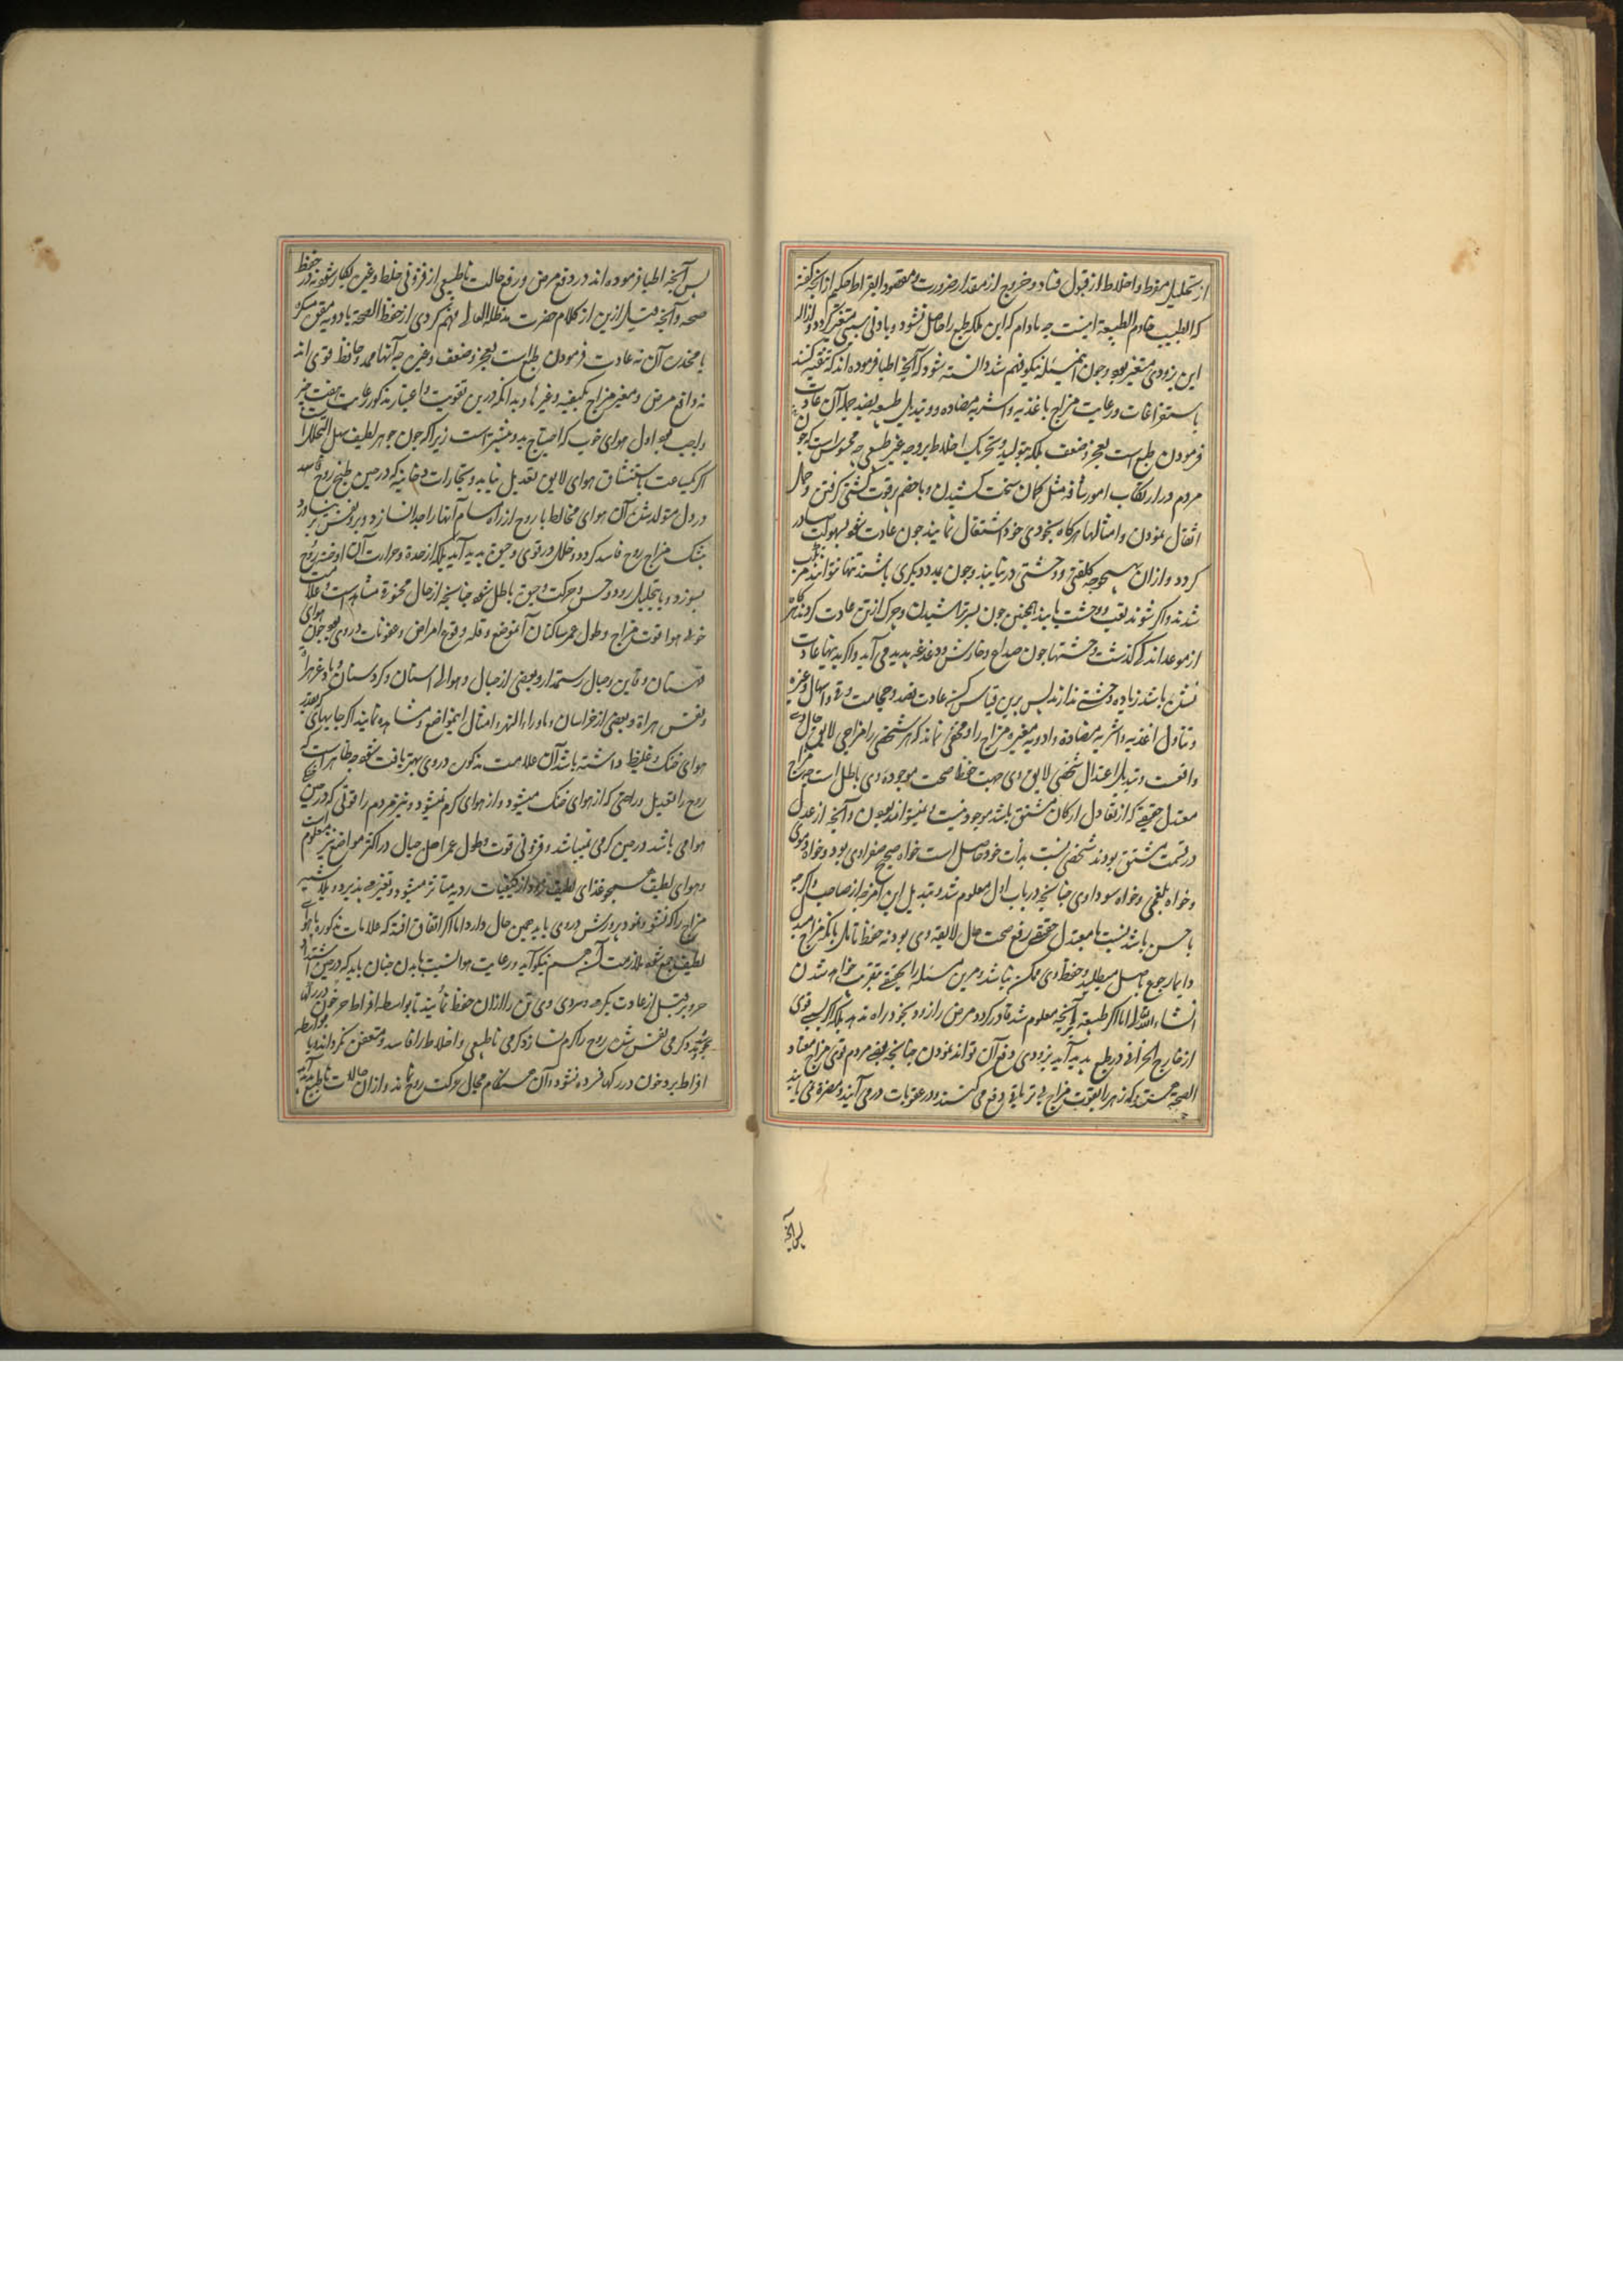 از تحلیل مفرط و اخلاط از قبول فساد و خروج از مقدار ضرورت و مقصود ابقراط حکیم از آنچه گفته
که الطبیب خادم الطبیعة اینست چه مادام که این ملکه طبع را حاصل نشود و بادنی سببی متغیر گردد و ازاله
این بزودی متغیر شود و چون این مسئله نیکو فهم شد دانسته شود که آنچه اطبا فرموده‌اند که تنقیه کنند
باستفراغات و رعایت مزاج باغذیه و اشربه مضاده و تبدیل طبیعه بضد جمله آن عادت
فرمودن طبع است بعجز و ضعف بلکه بتولید و تحریک اخلاط بر وجه غیر طبیعی چه محسوس است که چون
مردم در ارتکاب امور شاقه مثل کمان سخت کشیدن و با خصم پرقوت کشتی گرفتن و حمل
اثقال نمودن و امثالها هرگاه بخودی خود اشتغال نمایند چون عادت شود بسهولت صادر
گردد و ازان هیچ وجه کلفتی و وحشتی در نیابند و چون بمدد دیگری باشند تنها نتوانند مرتکب
شدند و اگر شوند تعب و وحشت یابند همچنین چون بسر تراشیدن و چرک از تن عادت کردند که اگر
از موعد اندکی گذشت وحشتها چون صداع و خارش و دغدغه پدید می آید و اگر بدینها عادت
نشده باشد زیاده وحشتی ندارند پس برین قیاس کن عادت فصد و حجامت و قی و اسهال و غیره
و تناول اغذیه و اشربه مضاده و ادویه مغیره مزاج را و مخفی نماند که هر شخصی را مزاجی لایق حال وی
واقعست و تبدیل اعتدال شخصی لایق وی جهت حفظ صحت موجوده وی باطل است چه مزاج
معتدل حقیقی که از تعادل ارکان مشتق باشد موجود نیست و نمیتواند بود و آنچه از عدل
در قسمت مشتق بود ند شخصی نسبت بذات خود حاصل است خواه صحیح صفراوی بود و خواه دموی
و خواه بلغمی و خواه سوداوی چنانچه در باب اول معلوم شد و تبدیل این امزجه از صاحب
باحسن باشد نسبت با معتدل حقیقی رفع صحت حال لایقه وی بود نه حفظ تامل بانکه مزاج اصلی
دایما رجوع باصل میطلبد و حفظ وی ممکن نباشد و مرین مسئله را تحقیقی بتقریب خواهد شدن
انشاء الله تعالی اما اگر طبیعه بر آنچه معلوم شد قادر گردد مرض را زود بخود راه ندهد بلکه اگر سببی قوی
از خارج انحرافی در طبع پدید آید بزودی دفع آن تواند نمودن چنانچه بعضی مردم قوی مزاج معتاد
الصحة هستند که زهر را بقوت مزاج بی تریاقی دفع می کنند و در عفونات در می آیند و مضره نمی یابند
پس آنچه
پس آنچه اطبا فرموده اند در دفع مرض و رفع حالت ناطبیعی از فزونی خلط و غیره بکار شود نه در حفظ
صحه و آنچه قبل ازین از کلام حضرت مدظله العالی فهم کردی از حفظ الصحة بادویه مقوی مسکره
یا مخدره آن نه عادت فرمودن طبع است بعجز و ضعف و غیره چه آنها ممد و حافظ قوی اند
نه دافع مرض و مغیر مزاج بکیفیه و غیرها و بدانکه درین تقویت و اعتبار مذکور رعایت هفت چیز
واجب بود اول هوای خوب که احتیاج بدو بیشتر است زیرا که چون جوهر لطیف سهل التحلل است
اگر یکساعت باستنشاق هوای لایق تعدیل نیابد و بخارات دخانیه که در حین طبخ روح
در دل متولد شده آن هوای مخالط با روح از راه مسام آنها را جدا نسازد و بدر نفس بر بیرون
بیشک مزاج روح فاسد گردد و خلل در قوی و حیوة پدید آید بلکه از حدة و حرارت آن افروخته روح
بسوزد و بتحلیل رود و حس و حرکت و حیوة باطل شود چنانچه از حال مخنوق مشاهد است و علامت هوای
خوب هوا قوت مزاج و طول عمر ساکنان آن موضع و قله وقوع امراض و عفونات در وی بود چون
قهستان و قاین و جبال رستمدار و بعضی از جبال و هوالی استان و کردستان و بادغیرها
و نفس هراة و بعضی از خراسان و ماوراءالنهر و امثال این مواضع و مشاهده نمایند اگر جاییهای که بقدر
هوای خنک و غلیظ داشته باشد آن علامت مذکور در وی بهتر یافت شود چه ظاهر است که
روح را تعدیل و راحتی که از هوای خنک میشود و از هوای گرم نمیشود و نیز مردم را قوتی که در حین خنکی
هوا می باشد در حین گرمی نمیباشد و فزونی قوت و طول عمر اهل جبال در اکثر مواضع نیز معلوم است
و هوای لطیف همچو غذای لطیف زود از کیفیات ردیه متاثر میشود و تغیر می پذیرد و بلاشبهه
مزاجی را که نشو و نمو و پرورش در وی یابد همین حال دارد اما اگر اتفاق افتد که علامات مذکوره با هوای
لطیف جمع شود ملازمت آن هم نیکو آید و رعایت هوا نسبت با بدن چنان باید که در حین اشتداد
حر و برد قبل از عادت بگرمی و سردی وی تن را از ان حفظ نمایند تا بواسطه افراط حر خون در رگها
بجوشد و گرمی نفس شش روح را گرم نسازد گرمی ناطبیعی و اخلاط را فاسد و متعفن نگرداند و با بواسطه
افراط برد خون در رگها فسرده نشود و آن هنگام مجال حرکت روح نماند و ازان حالات ناطبیعی پدید آید